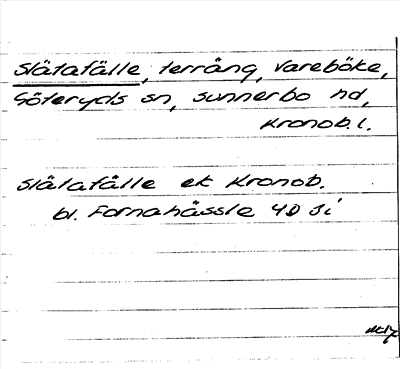 Slätafälle, terräng, Vareböke,
Göteryds sn, Sunnerbo hd,
Kronob. l.
Slätafälle ek Kronob.
bl. Fornahässle 4D Ji